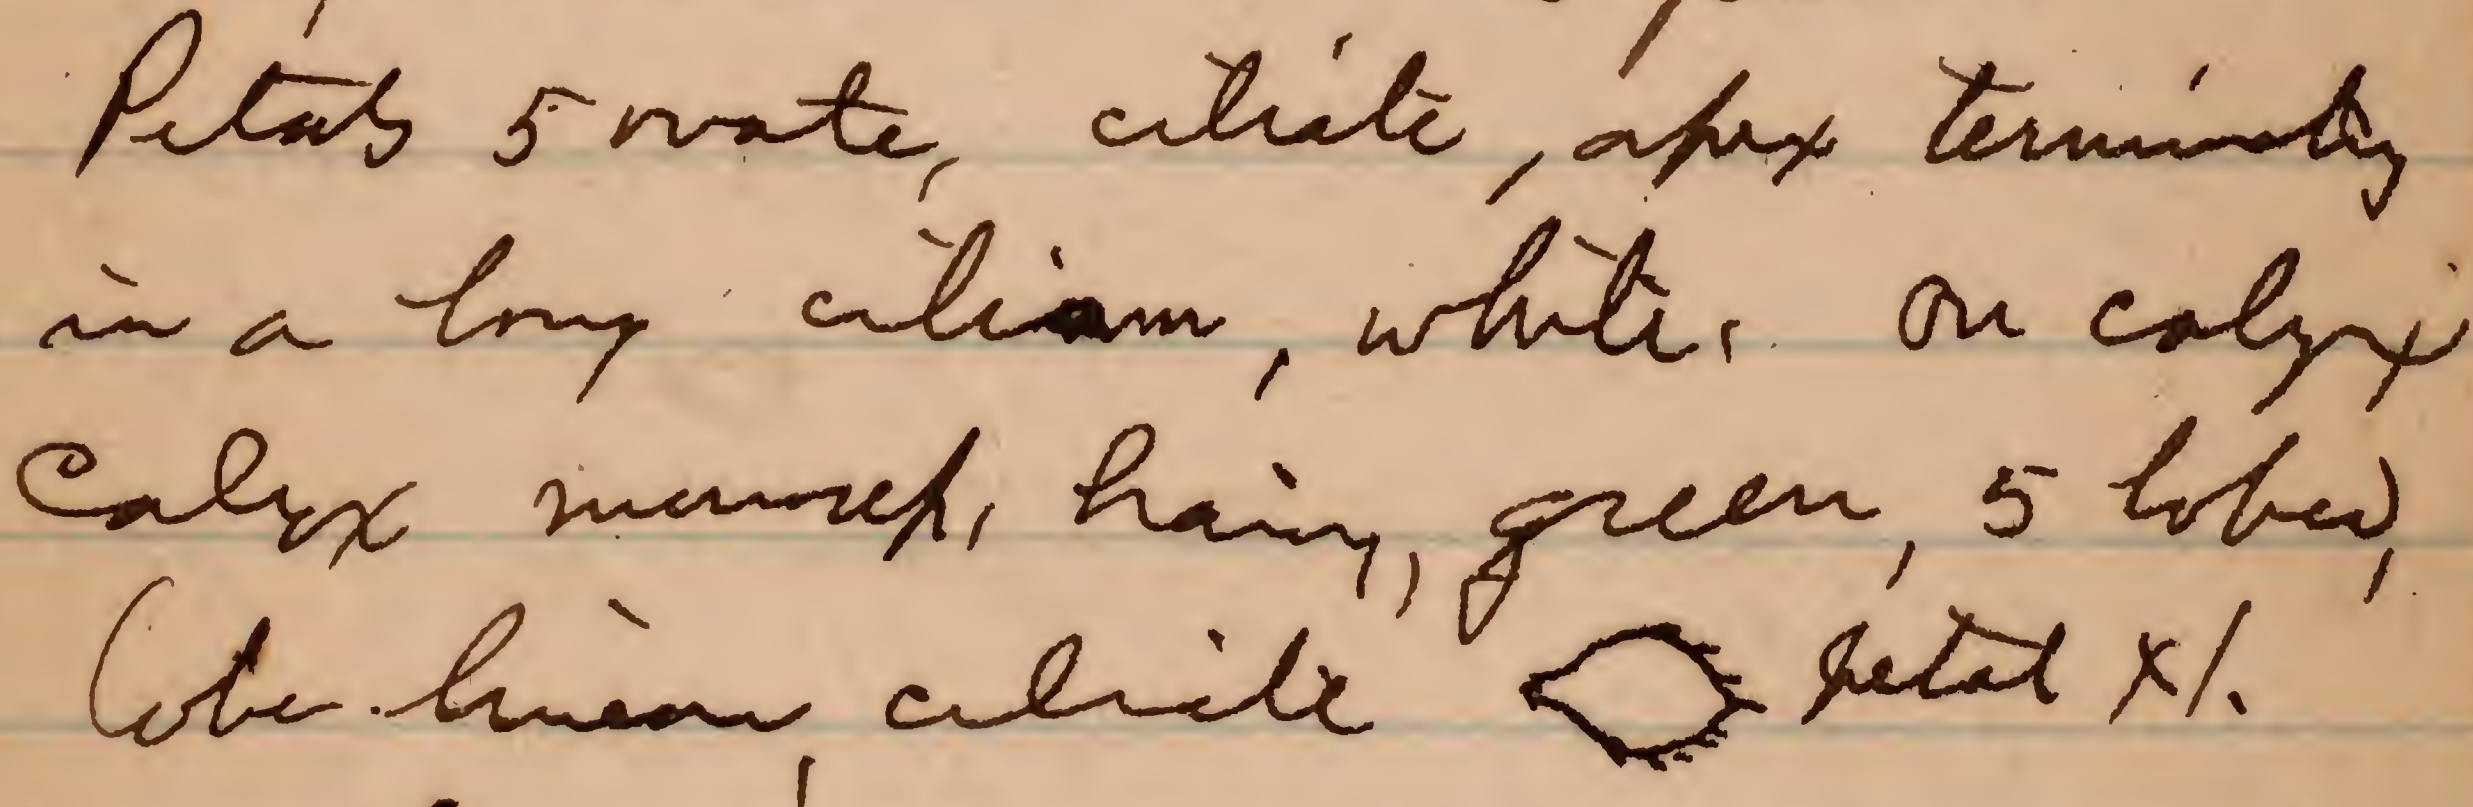 Petals 5 ovate, ciliate, apex terminaly
in a long cilium, white. On calyx
Calyx monosep, hairy, green, 5 lobed,
Lobe linear, ciliate petal x1.